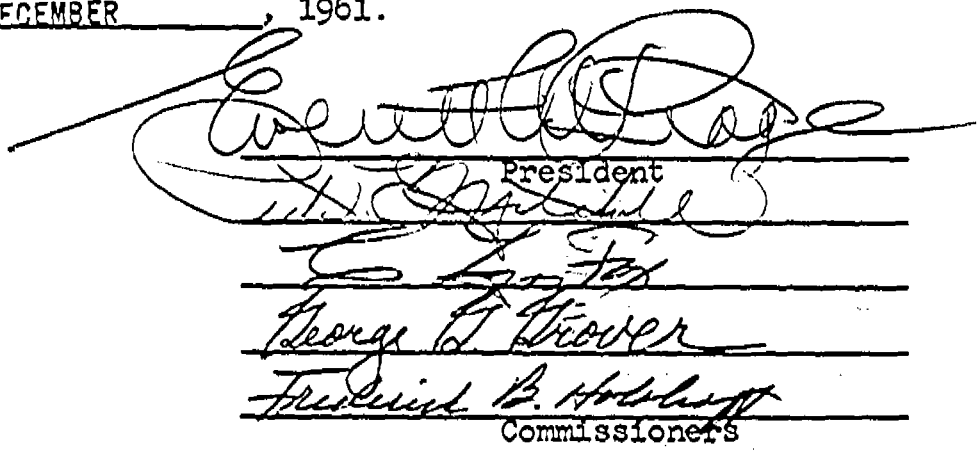 ECEMBER, 1961.
Everett C. McKeage
President
C. Lyn Fox
George G. Grover
Frederick B. Holoboff
Commissioners